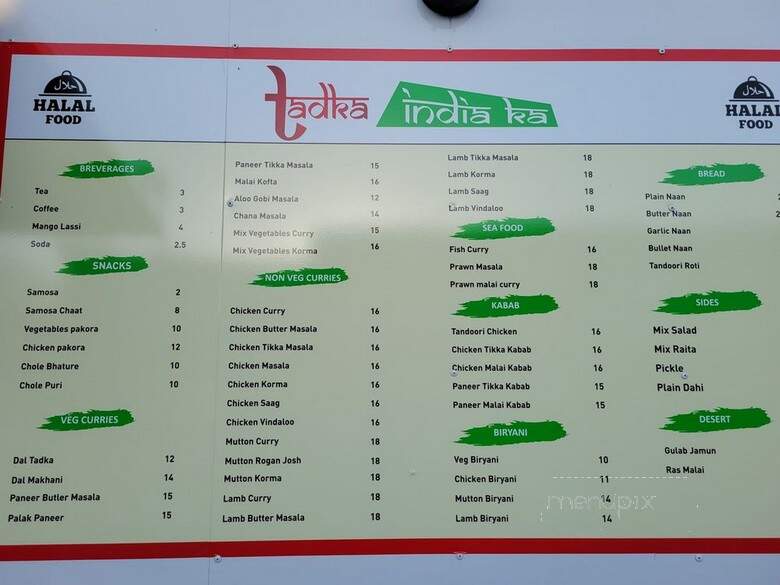 حلال
HALAL
FOOD
Tadka india ka
حلال
HALAL
FOOD
BREVERAGES
Tea 3
Coffee 3
Mango Lassi 4
Soda 2.5
SNACKS
Samosa 2
Samosa Chaat 8
Vegetables pakora 10
Chicken pakora 12
Chole Bhature 10
Chole Puri 10
VEG CURRIES
Dal Tadka 12
Dal Makhani 14
Paneer Butler Masala 15
Palak Paneer 15
Paneer Tikka Masala 15
Malai Kofta 16
Aloo Gobi Masala 12
Chana Masala 14
Mix Vegetables Curry 15
Mix Vegetables Korma 16
NON VEG CURRIES
Chicken Curry 16
Chicken Butter Masala 16
Chicken Tikka Masala 16
Chicken Masala 16
Chicken Korma 16
Chicken Saag 16
Chicken Vindaloo 16
Mutton Curry 18
Mutton Rogan Josh 18
Mutton Korma 18
Lamb Curry 18
Lamb Butter Masala 18
Lamb Tikka Masala 18
Lamb Korma 18
Lamb Saag 18
Lamb Vindaloo 18
SEA FOOD
Fish Curry 16
Prawn Masala 18
Prawn malai curry 18
KABAB
Tandoori Chicken 16
Chicken Tikka Kabab 16
Chicken Malai Kabab 16
Paneer Tikka Kabab 15
Paneer Malai Kabab 15
BIRYANI
Veg Biryani 10
Chicken Biryani 11
Mutton Biryani 14
Lamb Biryani 14
BREAD
Plain Naan
Butter Naan
Garlic Naan
Bullet Naan
Tandoori Roti
SIDES
Mix Salad
Mix Raita
Pickle
Plain Dahi
DESERT
Gulab Jamun
Ras Malai
menupix